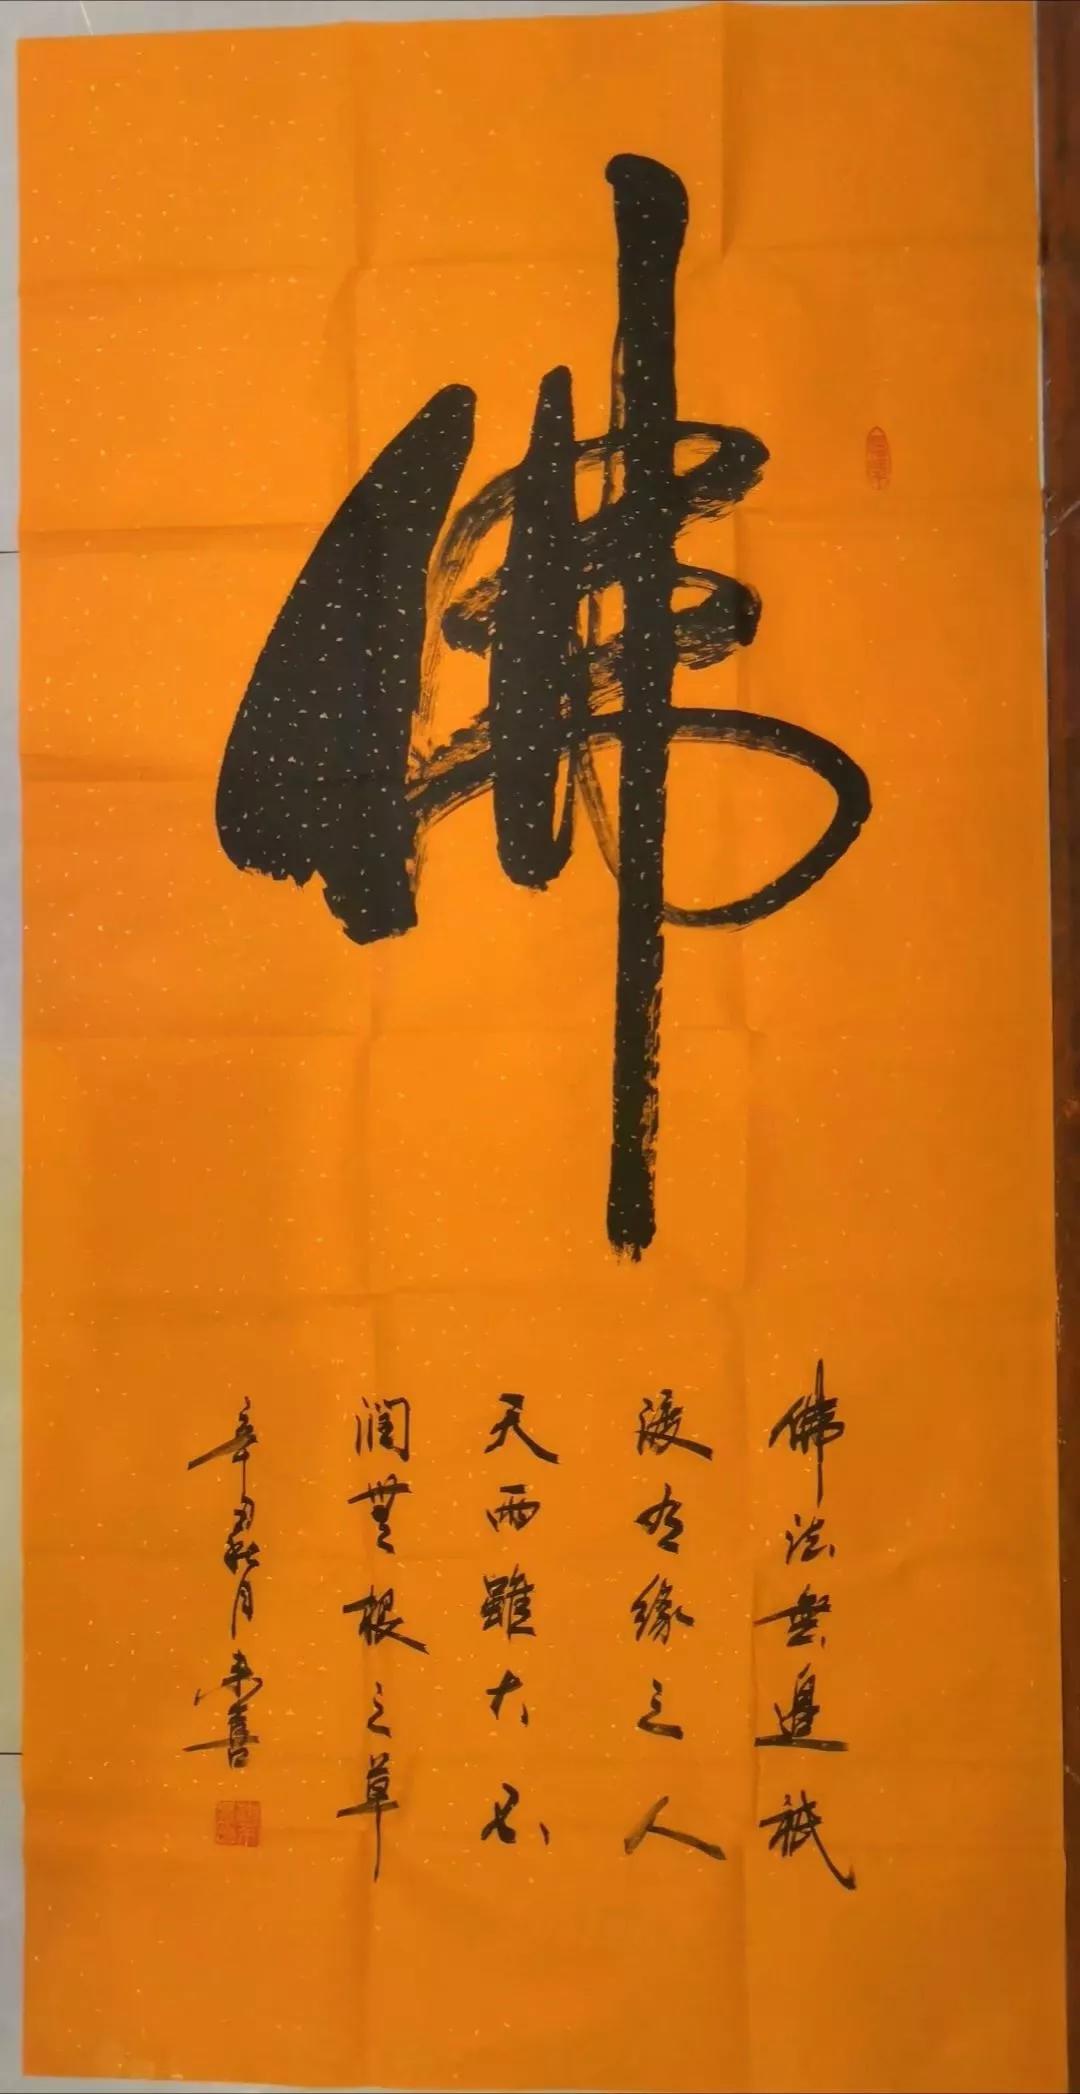 佛
佛法無邊祇
渡有緣之人
天雨雖大不
潤無根之草
辛丑秋月